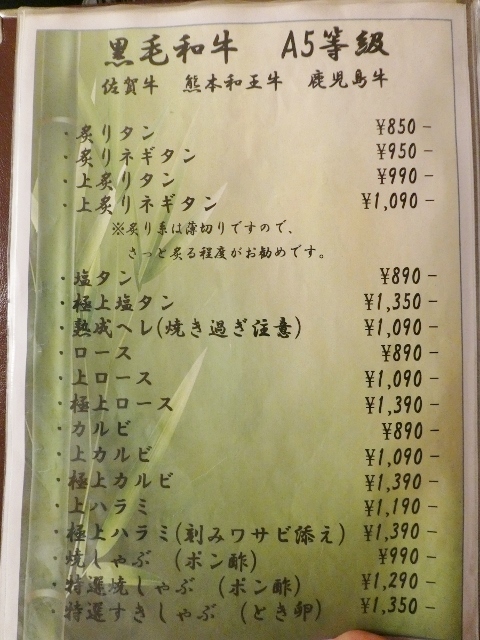 黒毛和牛　A5等級
佐賀牛　熊本和王牛　鹿児島牛
・炙りタン ¥850−
・炙りネギタン ¥950−
・上炙りタン ¥990−
・上炙りネギタン ¥1,090−
※炙り系は薄切りですので、
さっと炙る程度がお勧めです。
・塩タン ¥890−
・極上塩タン ¥1,350−
・熟成ヘレ(焼き過ぎ注意) ¥1,090−
・ロース ¥890−
・上ロース ¥1,090−
・極上ロース ¥1,390−
・カルビ ¥890−
・上カルビ ¥1,090−
・極上カルビ ¥1,390−
・上ハラミ ¥1,190−
・極上ハラミ(刻みワサビ添え) ¥1,390−
・焼しゃぶ　(ポン酢) ¥990−
・特選焼しゃぶ　(ポン酢) ¥1,290−
・特選すきしゃぶ　(とき卵) ¥1,350−